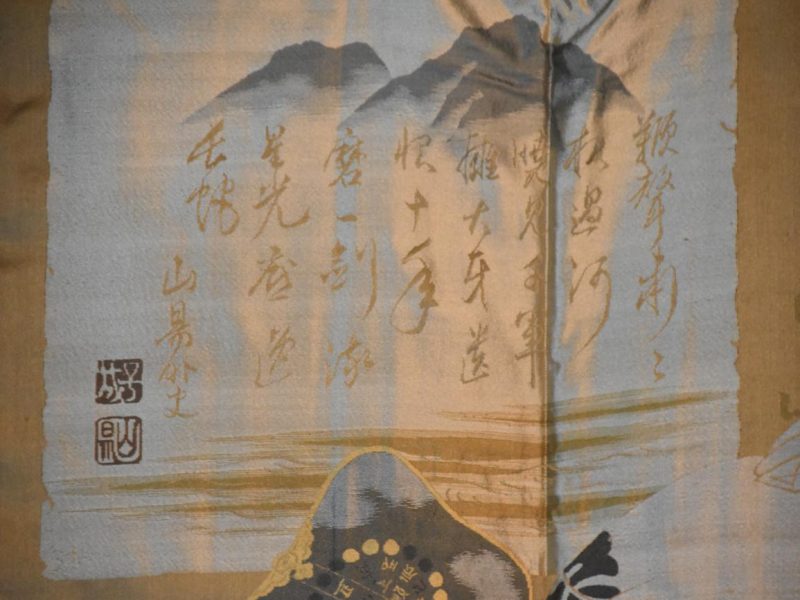 鞭聲肅々
夜過河
曉見千軍
擁大牙遺
恨十年
磨一剣流
星光底逸
長蛇
山陽外史